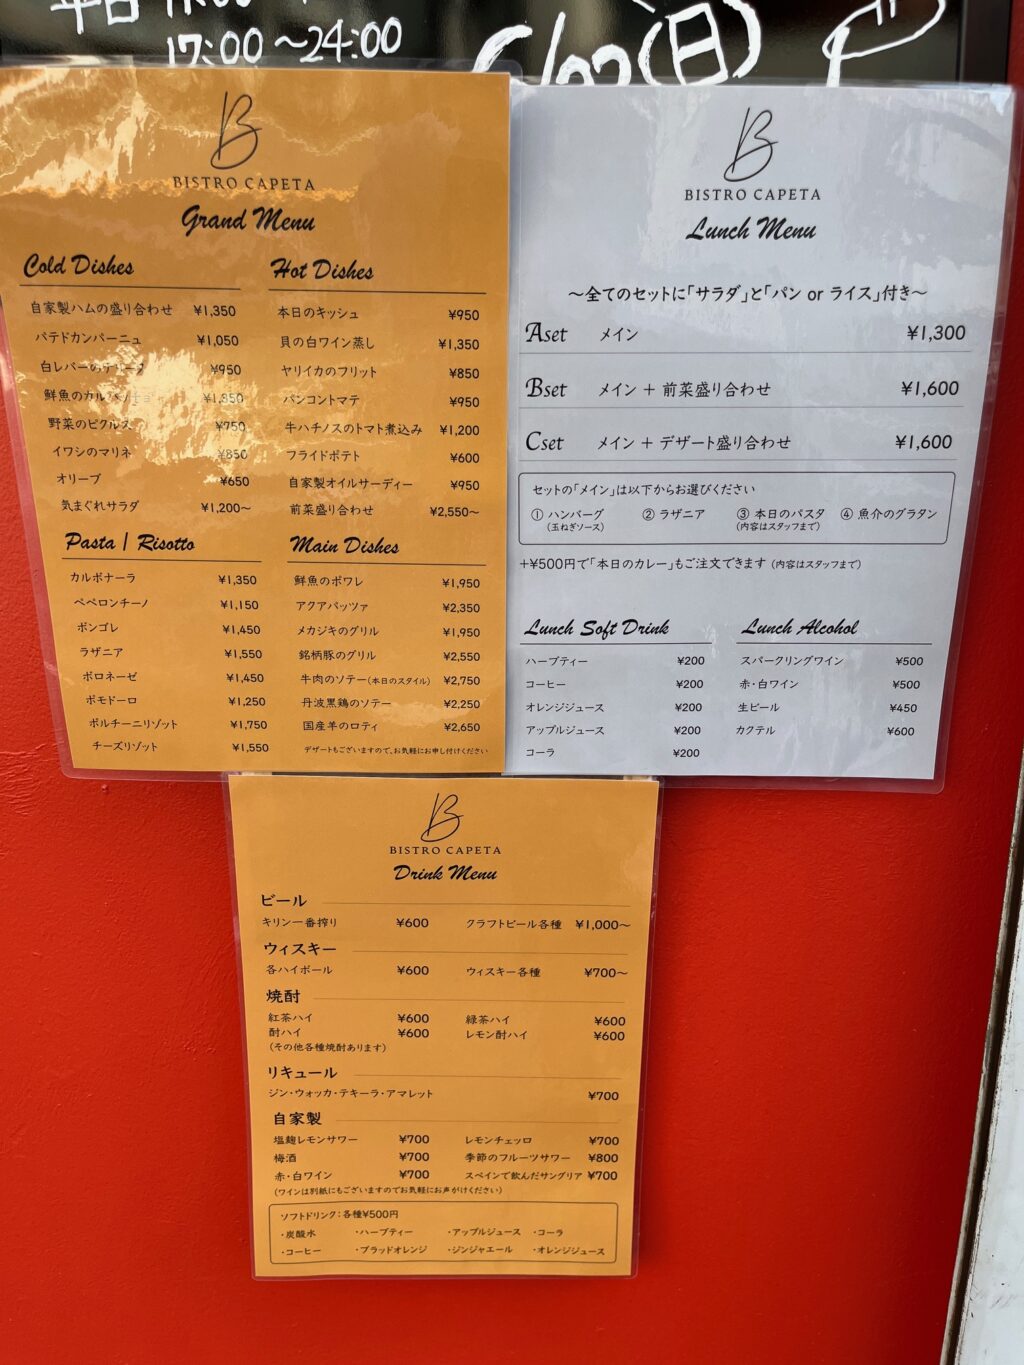 17:00～24:00
(日)
B
BISTRO CAPETA
Grand Menu
Cold Dishes
自家製ハムの盛り合わせ ¥1,350
パテドカンパーニュ ¥1,050
白レバーのテリーヌ ¥950
鮮魚のカルパッチョ
野菜のピクルス ¥750
イワシのマリネ ¥850
オリーブ ¥650
気まぐれサラダ ¥1,200～
Hot Dishes
本日のキッシュ ¥950
貝の白ワイン蒸し ¥1,350
ヤリイカのフリット ¥850
パンコントマテ ¥950
牛ハチノスのトマト煮込み ¥1,200
フライドポテト ¥600
自家製オイルサーディー ¥950
前菜盛り合わせ ¥2,550～
Pasta / Risotto
カルボナーラ ¥1,350
ペペロンチーノ ¥1,150
ボンゴレ ¥1,450
ラザニア ¥1,550
ボロネーゼ ¥1,450
ポモドーロ ¥1,250
ポルチーニリゾット ¥1,750
チーズリゾット ¥1,550
Main Dishes
鮮魚のポワレ ¥1,950
アクアパッツァ ¥2,350
メカジキのグリル ¥1,950
銘柄豚のグリル ¥2,550
牛肉のソテー(本日のスタイル) ¥2,750
丹波黒鶏のソテー ¥2,250
国産羊のロティ ¥2,650
デザートもございますので、お気軽にお申し付けください
B
BISTRO CAPETA
Lunch Menu
～全てのセットに「サラダ」と「パン or ライス」付き～
Aset メイン ¥1,300
Bset メイン + 前菜盛り合わせ ¥1,600
Cset メイン + デザート盛り合わせ ¥1,600
セットの「メイン」は以下からお選びください
① ハンバーグ ② ラザニア ③ 本日のパスタ ④ 魚介のグラタン
(玉ねぎソース) (内容はスタッフまで)
+¥500円で「本日のカレー」もご注文できます (内容はスタッフまで)
Lunch Soft Drink
ハーブティー ¥200
コーヒー ¥200
オレンジジュース ¥200
アップルジュース ¥200
コーラ ¥200
Lunch Alcohol
スパークリングワイン ¥500
赤・白ワイン ¥500
生ビール ¥450
カクテル ¥600
B
BISTRO CAPETA
Drink Menu
ビール
キリン一番搾り ¥600 クラフトビール各種 ¥1,000～
ウィスキー
各ハイボール ¥600 ウィスキー各種 ¥700～
焼酎
紅茶ハイ ¥600 緑茶ハイ ¥600
酎ハイ ¥600 レモン酎ハイ ¥600
(その他各種焼酎あります)
リキュール
ジン・ウォッカ・テキーラ・アマレット ¥700
自家製
塩麹レモンサワー ¥700 レモンチェッロ ¥700
梅酒 ¥700 季節のフルーツサワー ¥800
赤・白ワイン ¥700 スペインで飲んだサングリア ¥700
(ワインは別紙にもございますのでお気軽にお声がけください)
ソフトドリンク：各種¥500円
・炭酸水 ・ハーブティー ・アップルジュース ・コーラ
・コーヒー ・ブラッドオレンジ ・ジンジャエール ・オレンジジュース